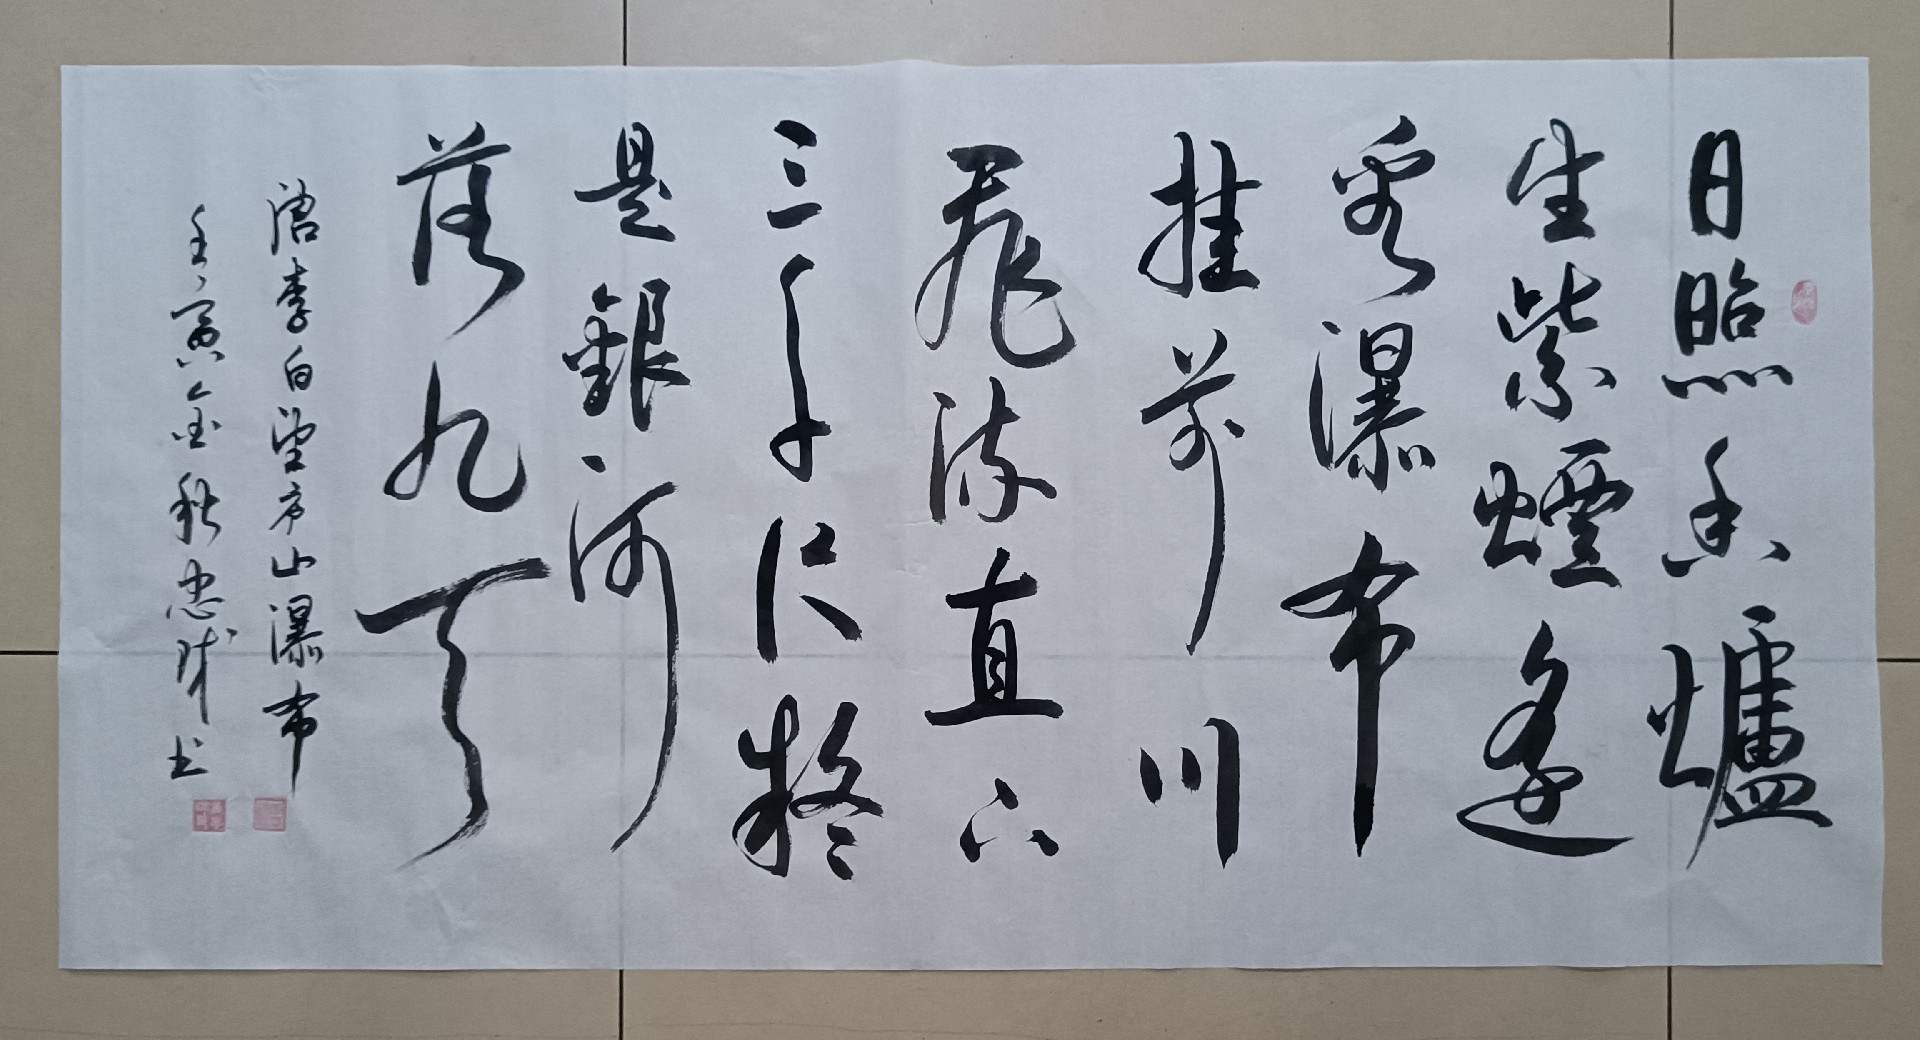 日照香爐
生紫煙遙
看瀑布
挂前川
飛流直下
三千尺疑
是銀河
落九天
唐李白望庐山瀑布
壬寅金秋忠书